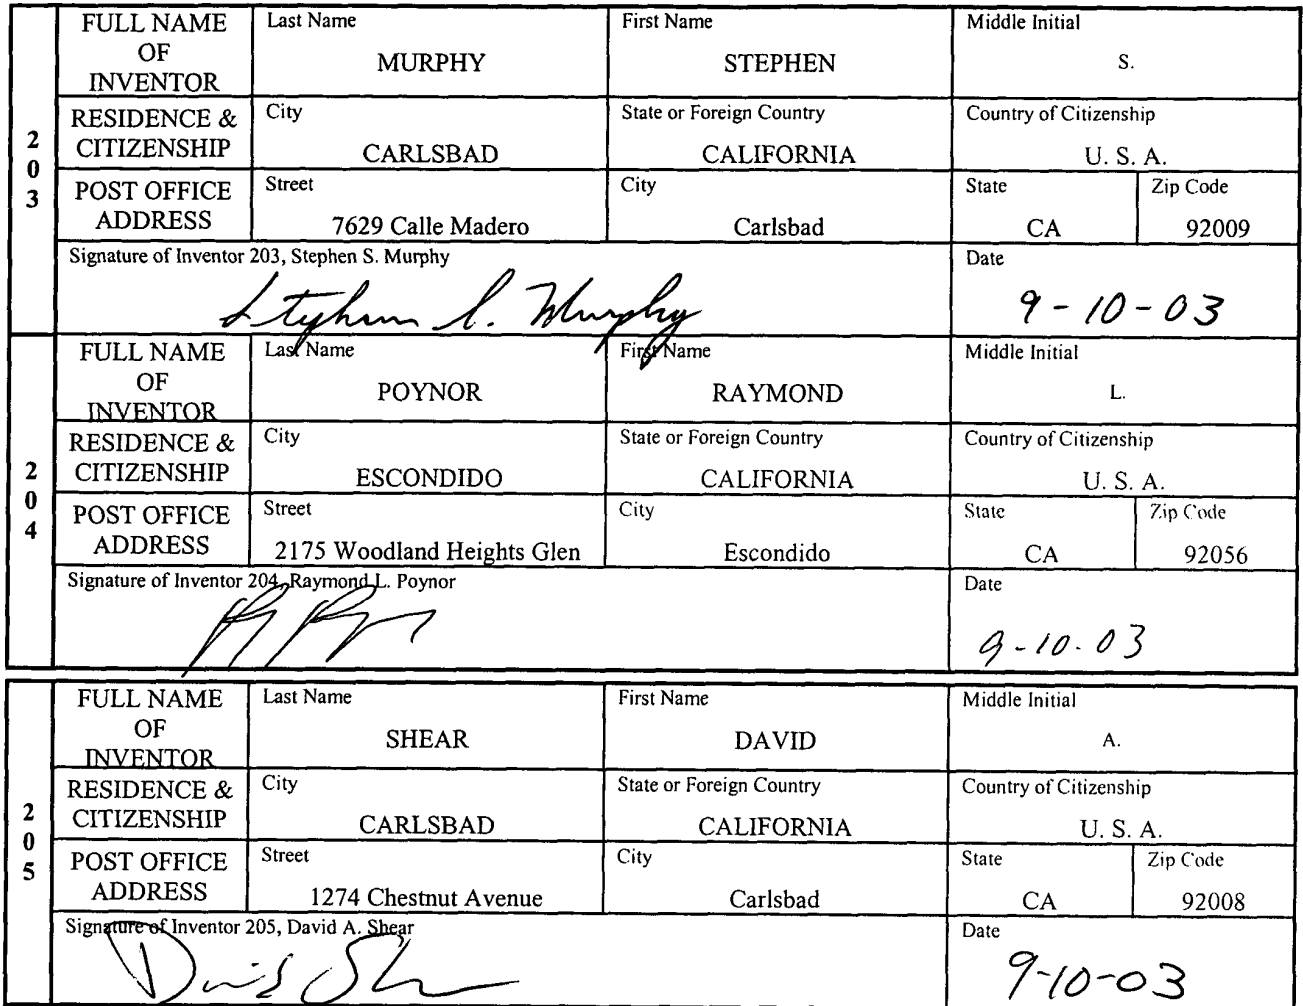 203
FULL NAME OF INVENTOR
Last Name
MURPHY
First Name
STEPHEN
Middle Initial
S.
RESIDENCE & CITIZENSHIP
City
CARLSBAD
State or Foreign Country
CALIFORNIA
Country of Citizenship
U. S. A.
POST OFFICE ADDRESS
Street
7629 Calle Madero
City
Carlsbad
State
CA
Zip Code
92009
Signature of Inventor 203, Stephen S. Murphy
Stephen S. Murphy
Date
9-10-03
204
FULL NAME OF INVENTOR
Last Name
POYNOR
First Name
RAYMOND
Middle Initial
L.
RESIDENCE & CITIZENSHIP
City
ESCONDIDO
State or Foreign Country
CALIFORNIA
Country of Citizenship
U. S. A.
POST OFFICE ADDRESS
Street
2175 Woodland Heights Glen
City
Escondido
State
CA
Zip Code
92056
Signature of Inventor 204, Raymond L. Poynor
Date
9-10-03
205
FULL NAME OF INVENTOR
Last Name
SHEAR
First Name
DAVID
Middle Initial
A.
RESIDENCE & CITIZENSHIP
City
CARLSBAD
State or Foreign Country
CALIFORNIA
Country of Citizenship
U. S. A.
POST OFFICE ADDRESS
Street
1274 Chestnut Avenue
City
Carlsbad
State
CA
Zip Code
92008
Signature of Inventor 205, David A. Shear
Date
9-10-03